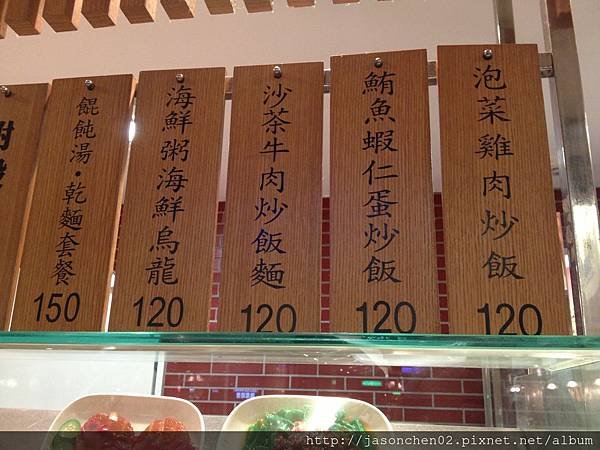 泡菜雞肉炒飯
120
鮪魚蝦仁蛋炒飯
120
沙茶牛肉炒飯麵
120
海鮮粥海鮮烏龍
120
餛飩湯·乾麵套餐
150
http://jasonchen02.pixnet.net/album